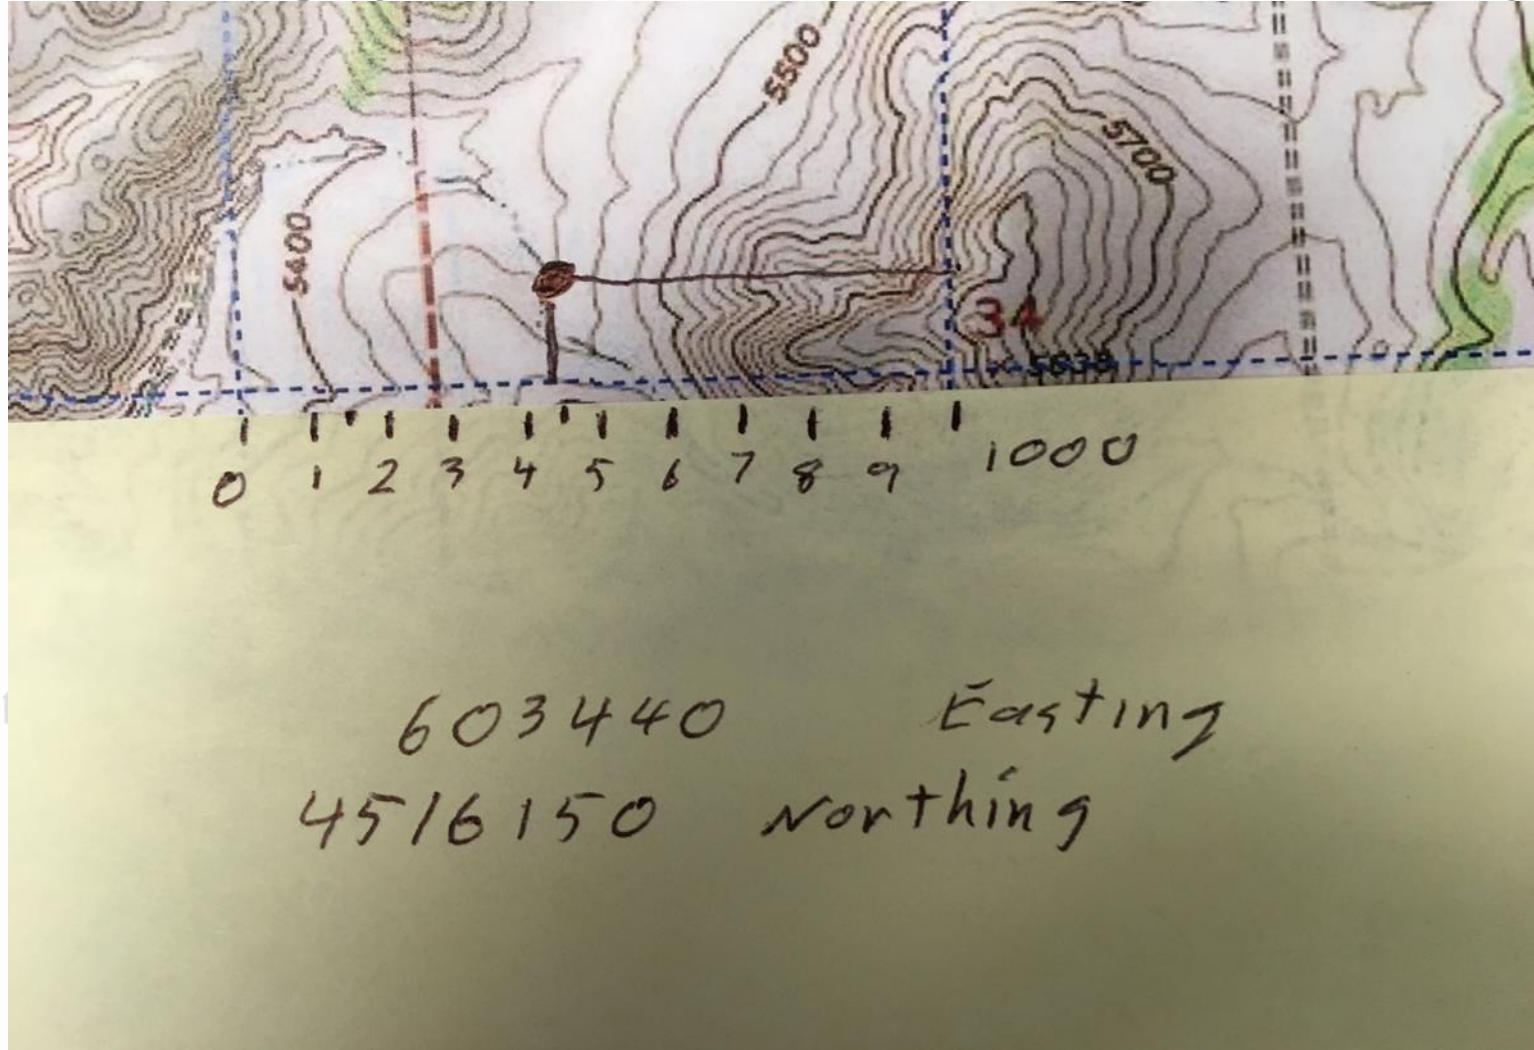 5500
5700
5400
34
5638
0 1 2 3 4 5 6 7 8 9 1000
603440 Easting
4516150 Northing